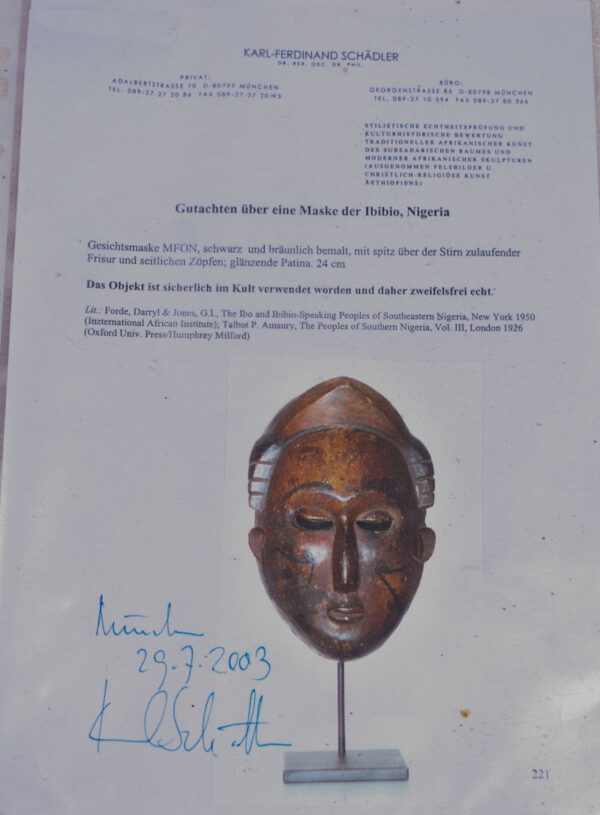 KARL-FERDINAND SCHÄDLER
DR. RER. OEC. DR. PHIL.
PRIVAT:
ADALBERTSTRASSE 70 D-80799 MÜNCHEN
TEL. 089-27 27 20 86 FAX 089-27 27 20-93
BÜRO:
GEORGENSTRASSE 85 D-80798 MÜNCHEN
TEL. 089-27 10 594 FAX 089-27 80 364
STILISTISCHE ECHTHEITSPRÜFUNG UND
KULTURHISTORISCHE BEWERTUNG
TRADITIONELLER AFRIKANISCHER KUNST
DES SUBSAHARISCHEN RAUMES UND
MODERNER AFRIKANISCHER SKULPTUREN
(AUSGENOMMEN FELSBILDER U
CHRISTLICH-RELIGIÖSE KUNST
ÄETHIOPIENS)
Gutachten über eine Maske der Ibibio, Nigeria
Gesichtsmaske MFON, schwarz und bräunlich bemalt, mit spitz über der Stirn zulaufender
Frisur und seitlichen Zöpfen; glänzende Patina. 24 cm
Das Objekt ist sicherlich im Kult verwendet worden und daher zweifelsfrei echt.
Lit.: Forde, Darryl & Jones, G.I., The Ibo and Ibibio-Speaking Peoples of Southeastern Nigeria, New York 1950
(Inzternational African Institute); Talbot P. Amaury, The Peoples of Southern Nigeria, Vol. III, London 1926
(Oxford Univ. Press/Humphrey Milford)
München
29.7.2003
221